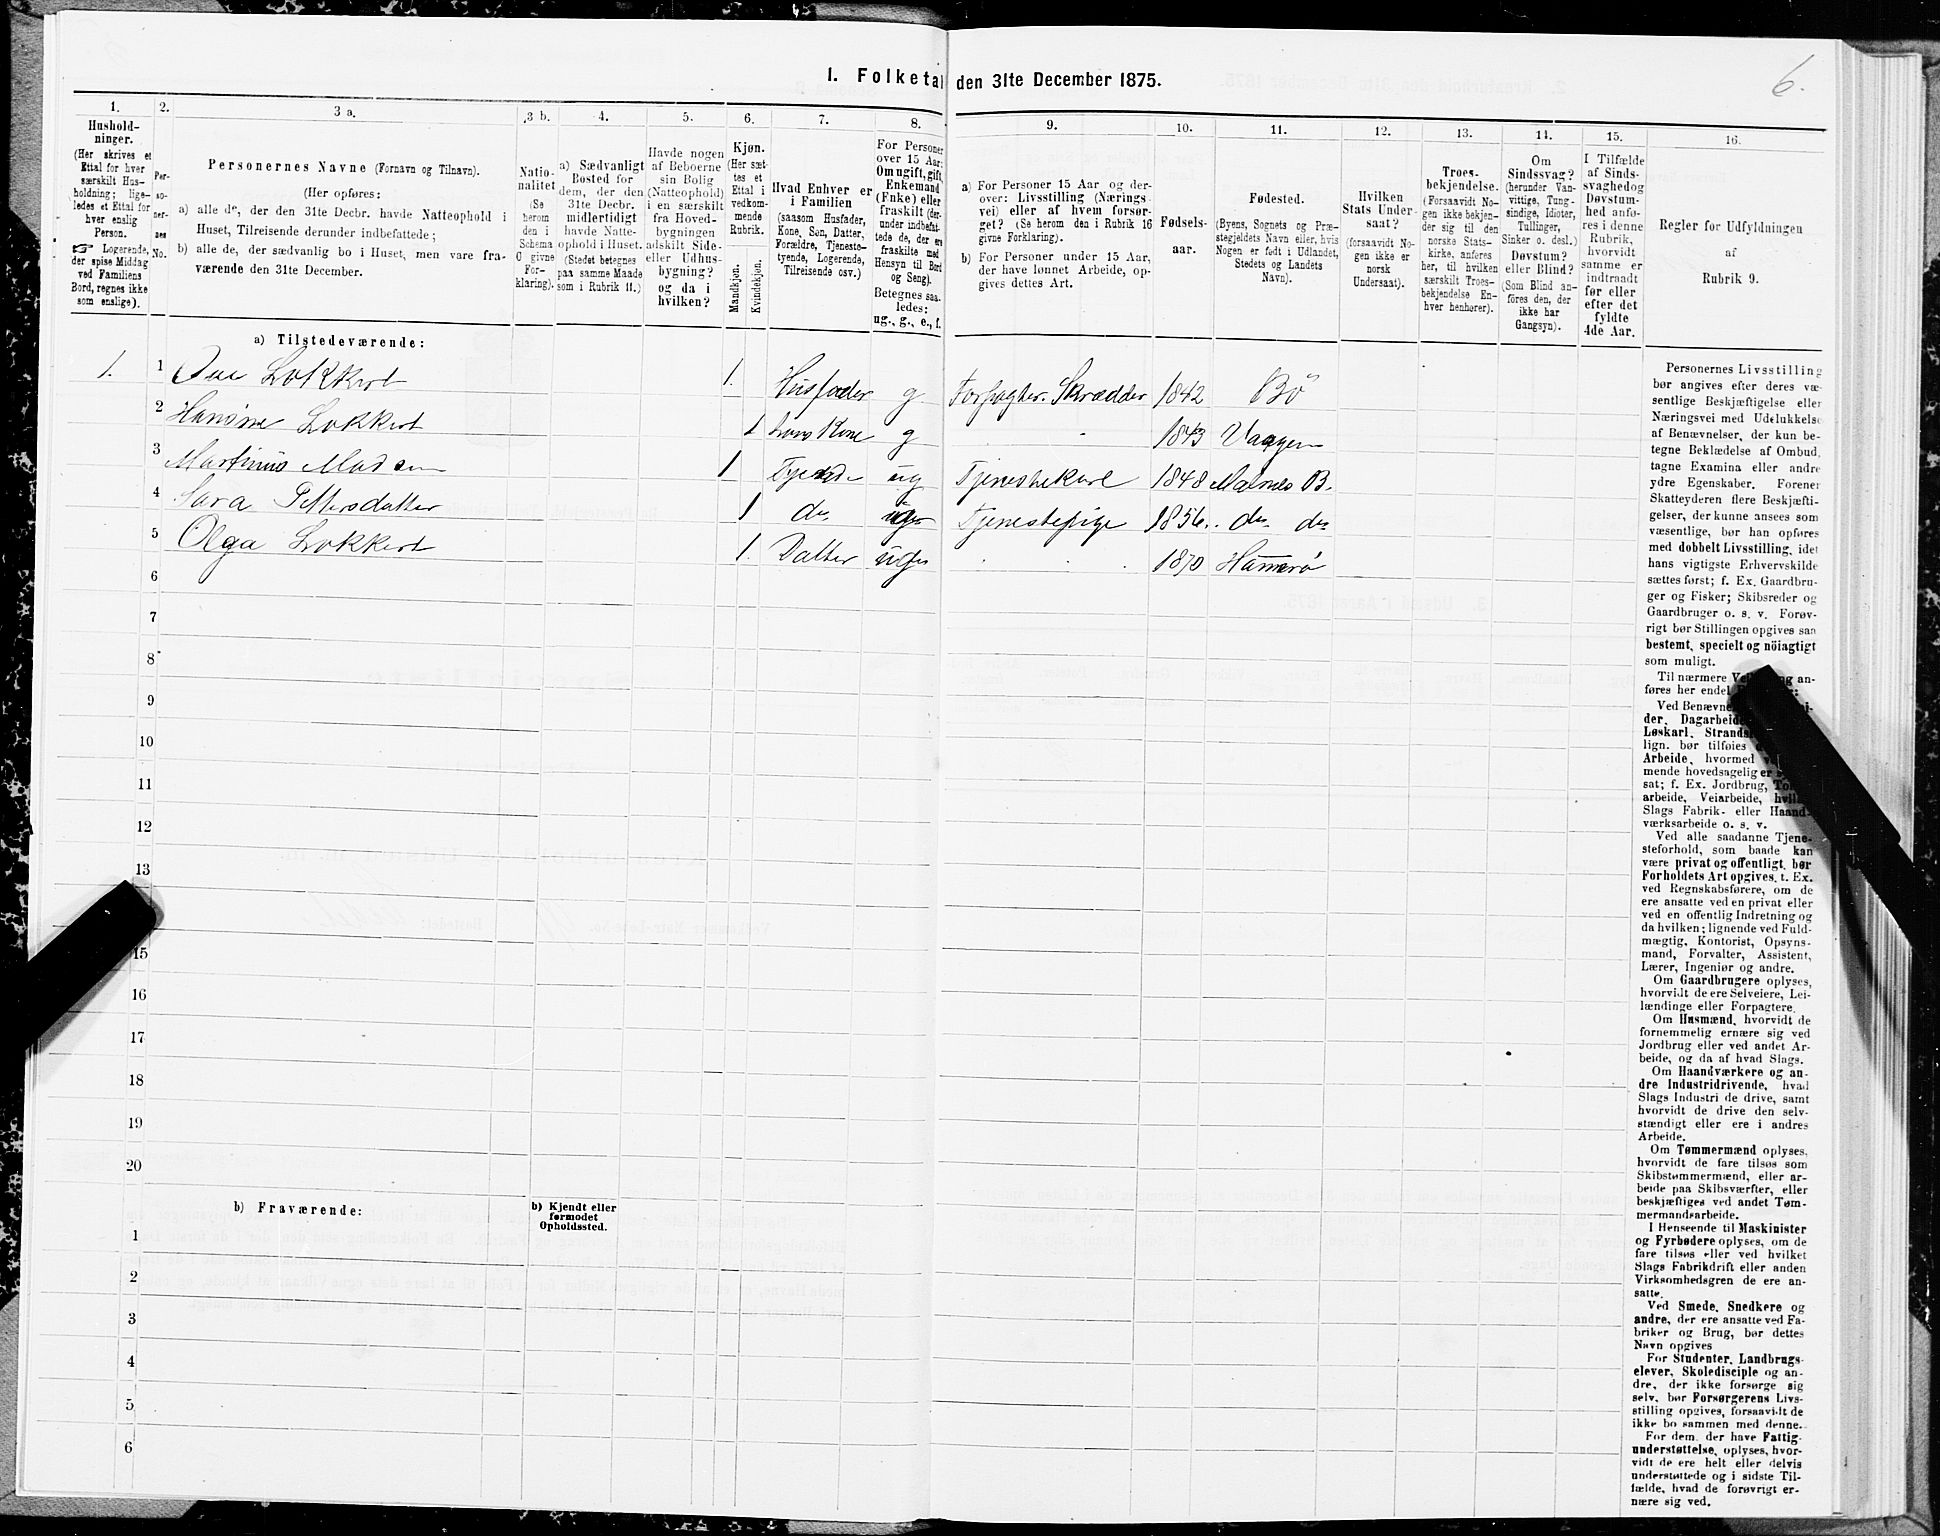 6.
1. Folketal den 31te December 1875.
1. 2. 3 a. 3 b. 4. 5. 6. 7. 8. 9. 10. 11. 12. 13. 14. 15. 16.
Hushold-
ninger.
(Her skrives et
Ettal for hver
særskilt Hus-
holdning; lige-
ledes et Ettal for
hver enslig
Person.
☞ Logerende,
der spise Middag
ved Familiens
Bord, regnes ikke
som enslige).
Per-
so-
ner-
nes
No.
Personernes Navne (Fornavn og Tilnavn).
(Her opføres:
a) alle de, der den 31te Decbr. havde Natteophold i
Huset, Tilreisende derunder indbefattede;
b) alle de, der sædvanlig bo i Huset, men vare fra-
værende den 31te December.
Natio-
nalitet
(Se
herom
den i
Schema
O givne
For-
klaring).
a) Sædvanligt
Bosted for
dem, der den
31te Decbr.
midlertidigt
havde Natte-
ophold i Huset.
(Stedet betegnes
paa samme Maade
som i Rubrik 11.)
Havde nogen
af Beboerne
sin Bolig
(Natteophold)
i en særskilt
fra Hoved-
bygningen
adskilt Side-
eller Udhus-
bygning?
og da i
hvilken?
Kjøn.
(Her sæt-
tes et
Ettal i
vedkom-
mende
Rubrik.
Mandkjøn.
Kvindekjøn.
Hvad Enhver er
i Familien
(saasom Husfader,
Kone, Søn, Datter,
Forældre, Tjeneste-
tyende, Logerende,
Tilreisende osv.)
For Personer
over 15 Aar:
Om ugift, gift,
Enkemand
(Enke) eller
fraskilt (der-
under indbefat-
tede de, der ere
fraskilte med
Hensyn til Bord
og Seng).
Betegnes saa-
ledes:
ug., g., e., f.
a) For Personer 15 Aar og der-
over: Livsstilling (Nærings-
vei) eller af hvem forsør-
get? (Se herom den i Rubrik 16
givne Forklaring).
b) For Personer under 15 Aar,
der have lønnet Arbeide, op-
gives dettes Art.
Fødsels-
aar.
Fødested.
(Byens, Sognets og Præ-
stegjeldets Navn eller, hvis
Nogen er født i Udlandet,
Stedets og Landets
Navn).
Hvilken
Stats Under-
saat?
(forsaavidt No-
gen ikke er
norsk
Undersaat).
Troes-
bekjendelse.
(Forsaavidt No-
gen ikke bekjen-
der sig til den
norske Stats-
kirke, anføres
her, til hvilken
særskilt Troes-
bekjendelse En-
hver henhører).
Om
Sindssvag?
(herunder Van-
vittige, Tung-
sindige, Idioter,
Tullinger,
Sinker o. desl.)
Døvstum?
eller Blind?
(Som Blind an-
føres den, der
ikke har
Gangsyn).
I Tilfælde
af Sinds-
svaghed og
Døvstum-
hed anfø-
res i denne
Rubrik,
hvorvidt
samme er
indtraadt
før eller
efter det
fyldte
4de Aar.
Regler for Udfyldningen
af
Rubrik 9.
a) Tilstedeværende:
1. 1 Lokkert 1. Husfader g Forpagter. Skrædder 1842 Bö
2 Hansine Lokkert 1 hans Kone g 1843 Vaagen
3 Martinus Madsen 1 Tjende ug Tjenestekarl 1848 Malnes B.
4 Sara Pettersdatter 1 do ug Tjenestepige 1856. do do
5 Olga Lokkert 1. Datter ug 1870 Hamerö
6
7
8
9
10
11
12
13
15
16
17
18
19
20
b) Fraværende:
b) Kjendt eller
formodet
Opholdssted.
1
2
3
4
5
6
Personernes Livsstilling
bør angives efter deres væ-
sentlige Beskjæftigelse eller
Næringsvei med Udelukkelse
af Benævnelser, der kun be-
tegne Beklædelse af Ombud,
tagne Examina eller andre
ydre Egenskaber. Forener
Skatteyderen flere Beskjæfti-
gelser, der kunne ansees som
væsentlige, bør han opføres
med dobbelt Livsstilling, idet
hans vigtigste Erhvervskilde
sættes først; f. Ex. Gaardbru-
ger og Fisker; Skibsreder og
Gaardbruger o. s. v. Forøv-
rigt bør Stillingen opgives saa
bestemt, specielt og nöiagtigt
som muligt.
Til nærmere an-
føres her endel
Ved
der, Dagarbeide
Løskarl, Strands
lign. bør tilføies
Arbeide, hvormed
mende hovedsagelig er
sat; f. Ex. Jordbrug,
arbeide, Veiarbeide,
Slags Fabrik- eller Haand-
værksarbeide o. s. v.
Ved alle saadanne Tjene-
steforhold, som baade kan
være privat og offentligt, bør
Forholdets Art opgives, t. Ex.
ved Regnskabsførere, om de
ere ansatte ved en privat eller
ved en offentlig Indretning og
da hvilken; lignende ved Fuld-
mægtig, Kontorist, Opsyns-
mand, Forvalter, Assistent,
Lærer, Ingeniør og andre.
Om Gaardbrugere oplyses,
hvorvidt de ere Selveiere, Lei-
lændinge eller Forpagtere.
Om Husmænd, hvorvidt de
fornemmelig ernære sig ved
Jordbrug eller ved andet Ar-
beide, og da af hvad Slags.
Om Haandværkere og an-
dre Industridrivende, hvad
Slags Industri de drive, samt
hvorvidt de drive den selv-
stændigt eller ere i andres
Arbeide.
Om Tømmermænd oplyses,
hvorvidt de fare tilsøs som
Skibstømmermænd, eller ar-
beide paa Skibsværfter, eller
beskjæftiges ved andet Tøm-
mermandsarbeide.
I Henseende til Maskinister
og Fyrbødere oplyses, om de
fare tilsøs eller ved hvilket
Slags Fabrikdrift eller anden
Virksomhedsgren de ere an-
satte.
Ved Smede, Snedkere og
andre, der ere ansatte ved Fa-
briker og Brug, bør dettes
Navn opgives
For Studenter, Landbrugs-
elever, Skoledisciple og an-
dre, der ikke forsørge sig
selv, bør Forsørgerens Livs-
stilling opgives, forsaavidt de
ikke bo sammen med denne.
For dem, der have Fattig-
understøttelse, oplyses, hvor-
vidt de ere helt eller delvis
understøttede og i sidste Til-
fælde, hvad de forøvrigt er-
nære sig ved.